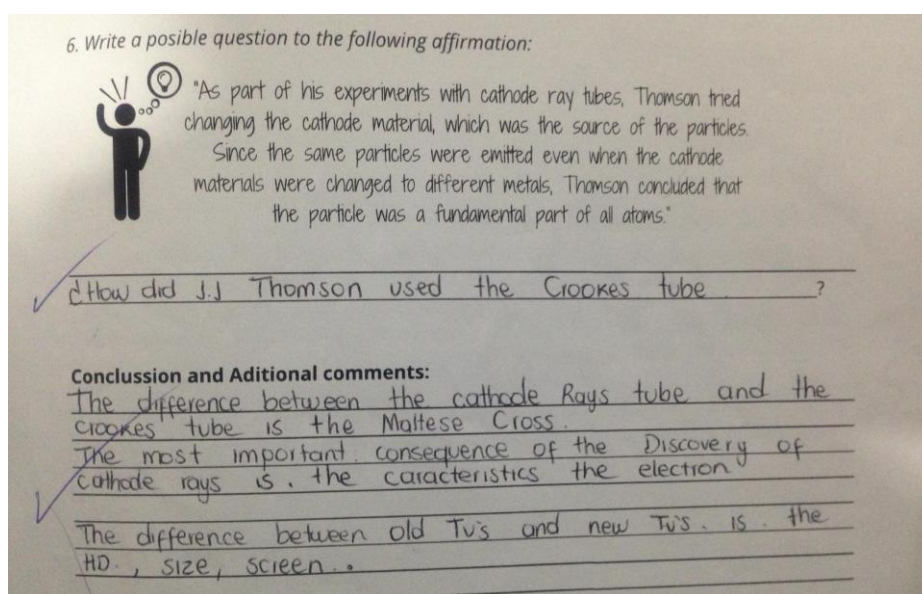 6. Write a posible question to the following affirmation:
"As part of his experiments with cathode ray tubes, Thomson tried
changing the cathode material, which was the source of the particles.
Since the same particles were emitted even when the cathode
materials were changed to different metals, Thomson concluded that
the particle was a fundamental part of all atoms."
¿How did J.J Thomson used the Crookes tube ?
Conclussion and Aditional comments:
The difference between the cathode Rays tube and the
crookes tube is the Maltese Cross.
The most important consequence of the Discovery of
cathode rays is. the caracteristics the electron
The difference between old Tv's and new Tv's. is. the
HD., size, screen..